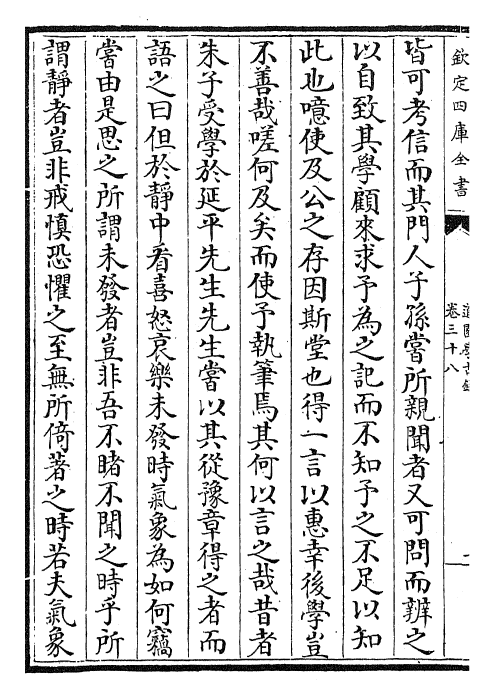 欽定四庫全書
道園學古錄
卷三十八
二
皆可考信而其門人子孫嘗所親聞者又可問而辨之
以自致其學顧來求予為之記而不知予之不足以知
此也噫使及公之存因斯堂也得一言以惠幸後學豈
不善哉嗟何及矣而使予執筆焉其何以言之哉昔者
朱子受學於延平先生先生嘗以其從豫章得之者而
語之曰但於靜中看喜怒哀樂未發時氣象為如何竊
嘗由是思之所謂未發者豈非吾不睹不聞之時乎所
謂靜者豈非戒慎恐懼之至無所倚著之時若夫氣象